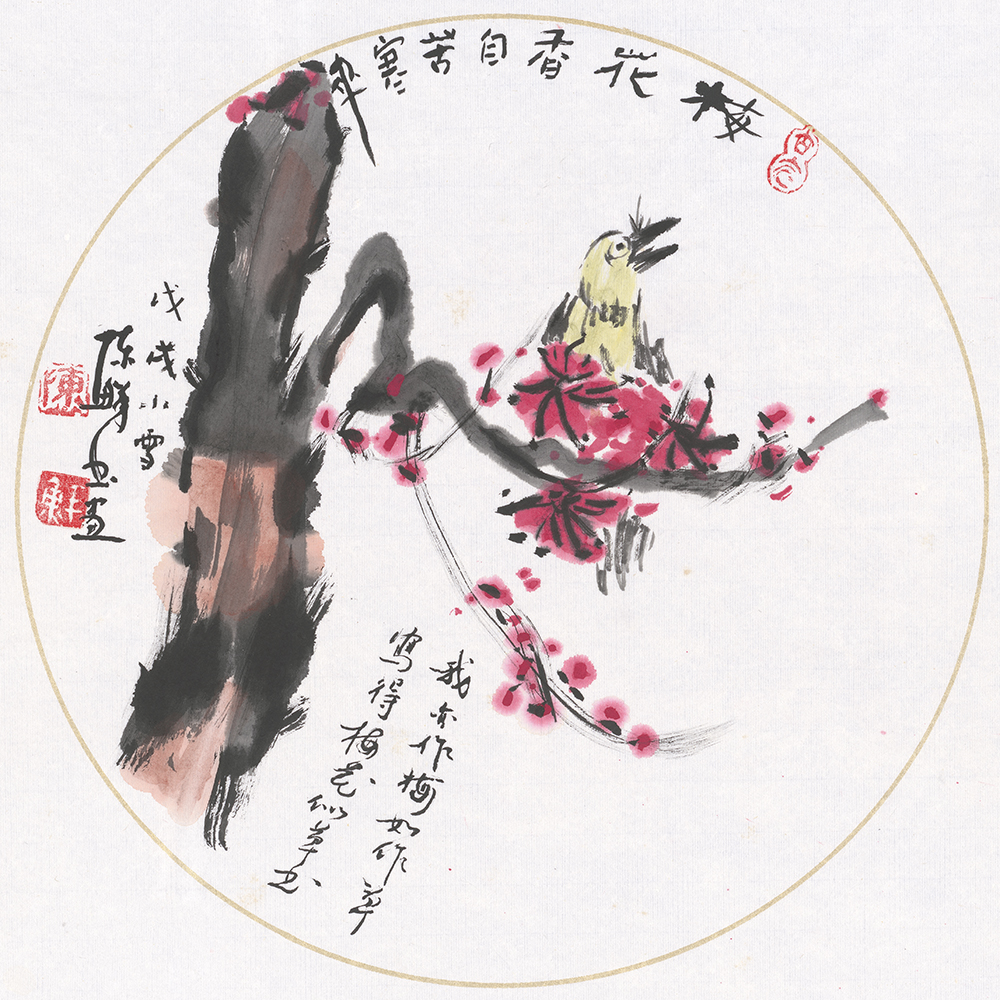 梅花香自苦寒来
戊戌小雪
陈鲜书画
陳
我亦作梅如作草
写得梅花似草书